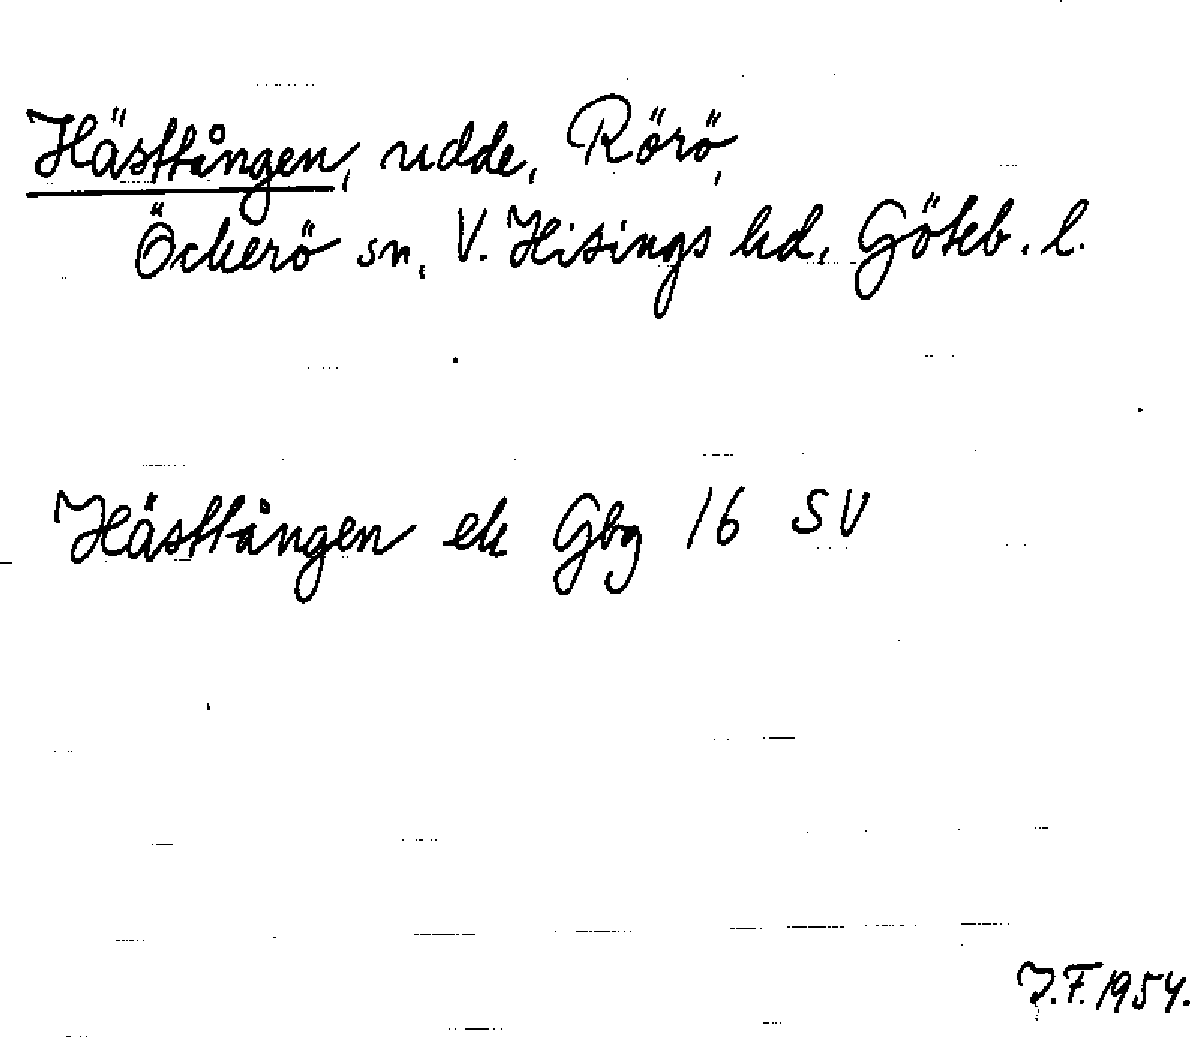 Hästtången, udde, Rörö,
Öckerö sn, V. Hisings hd, Göteb. l.
Hästtången ek Gbg 16 SV
J.F. 1954.